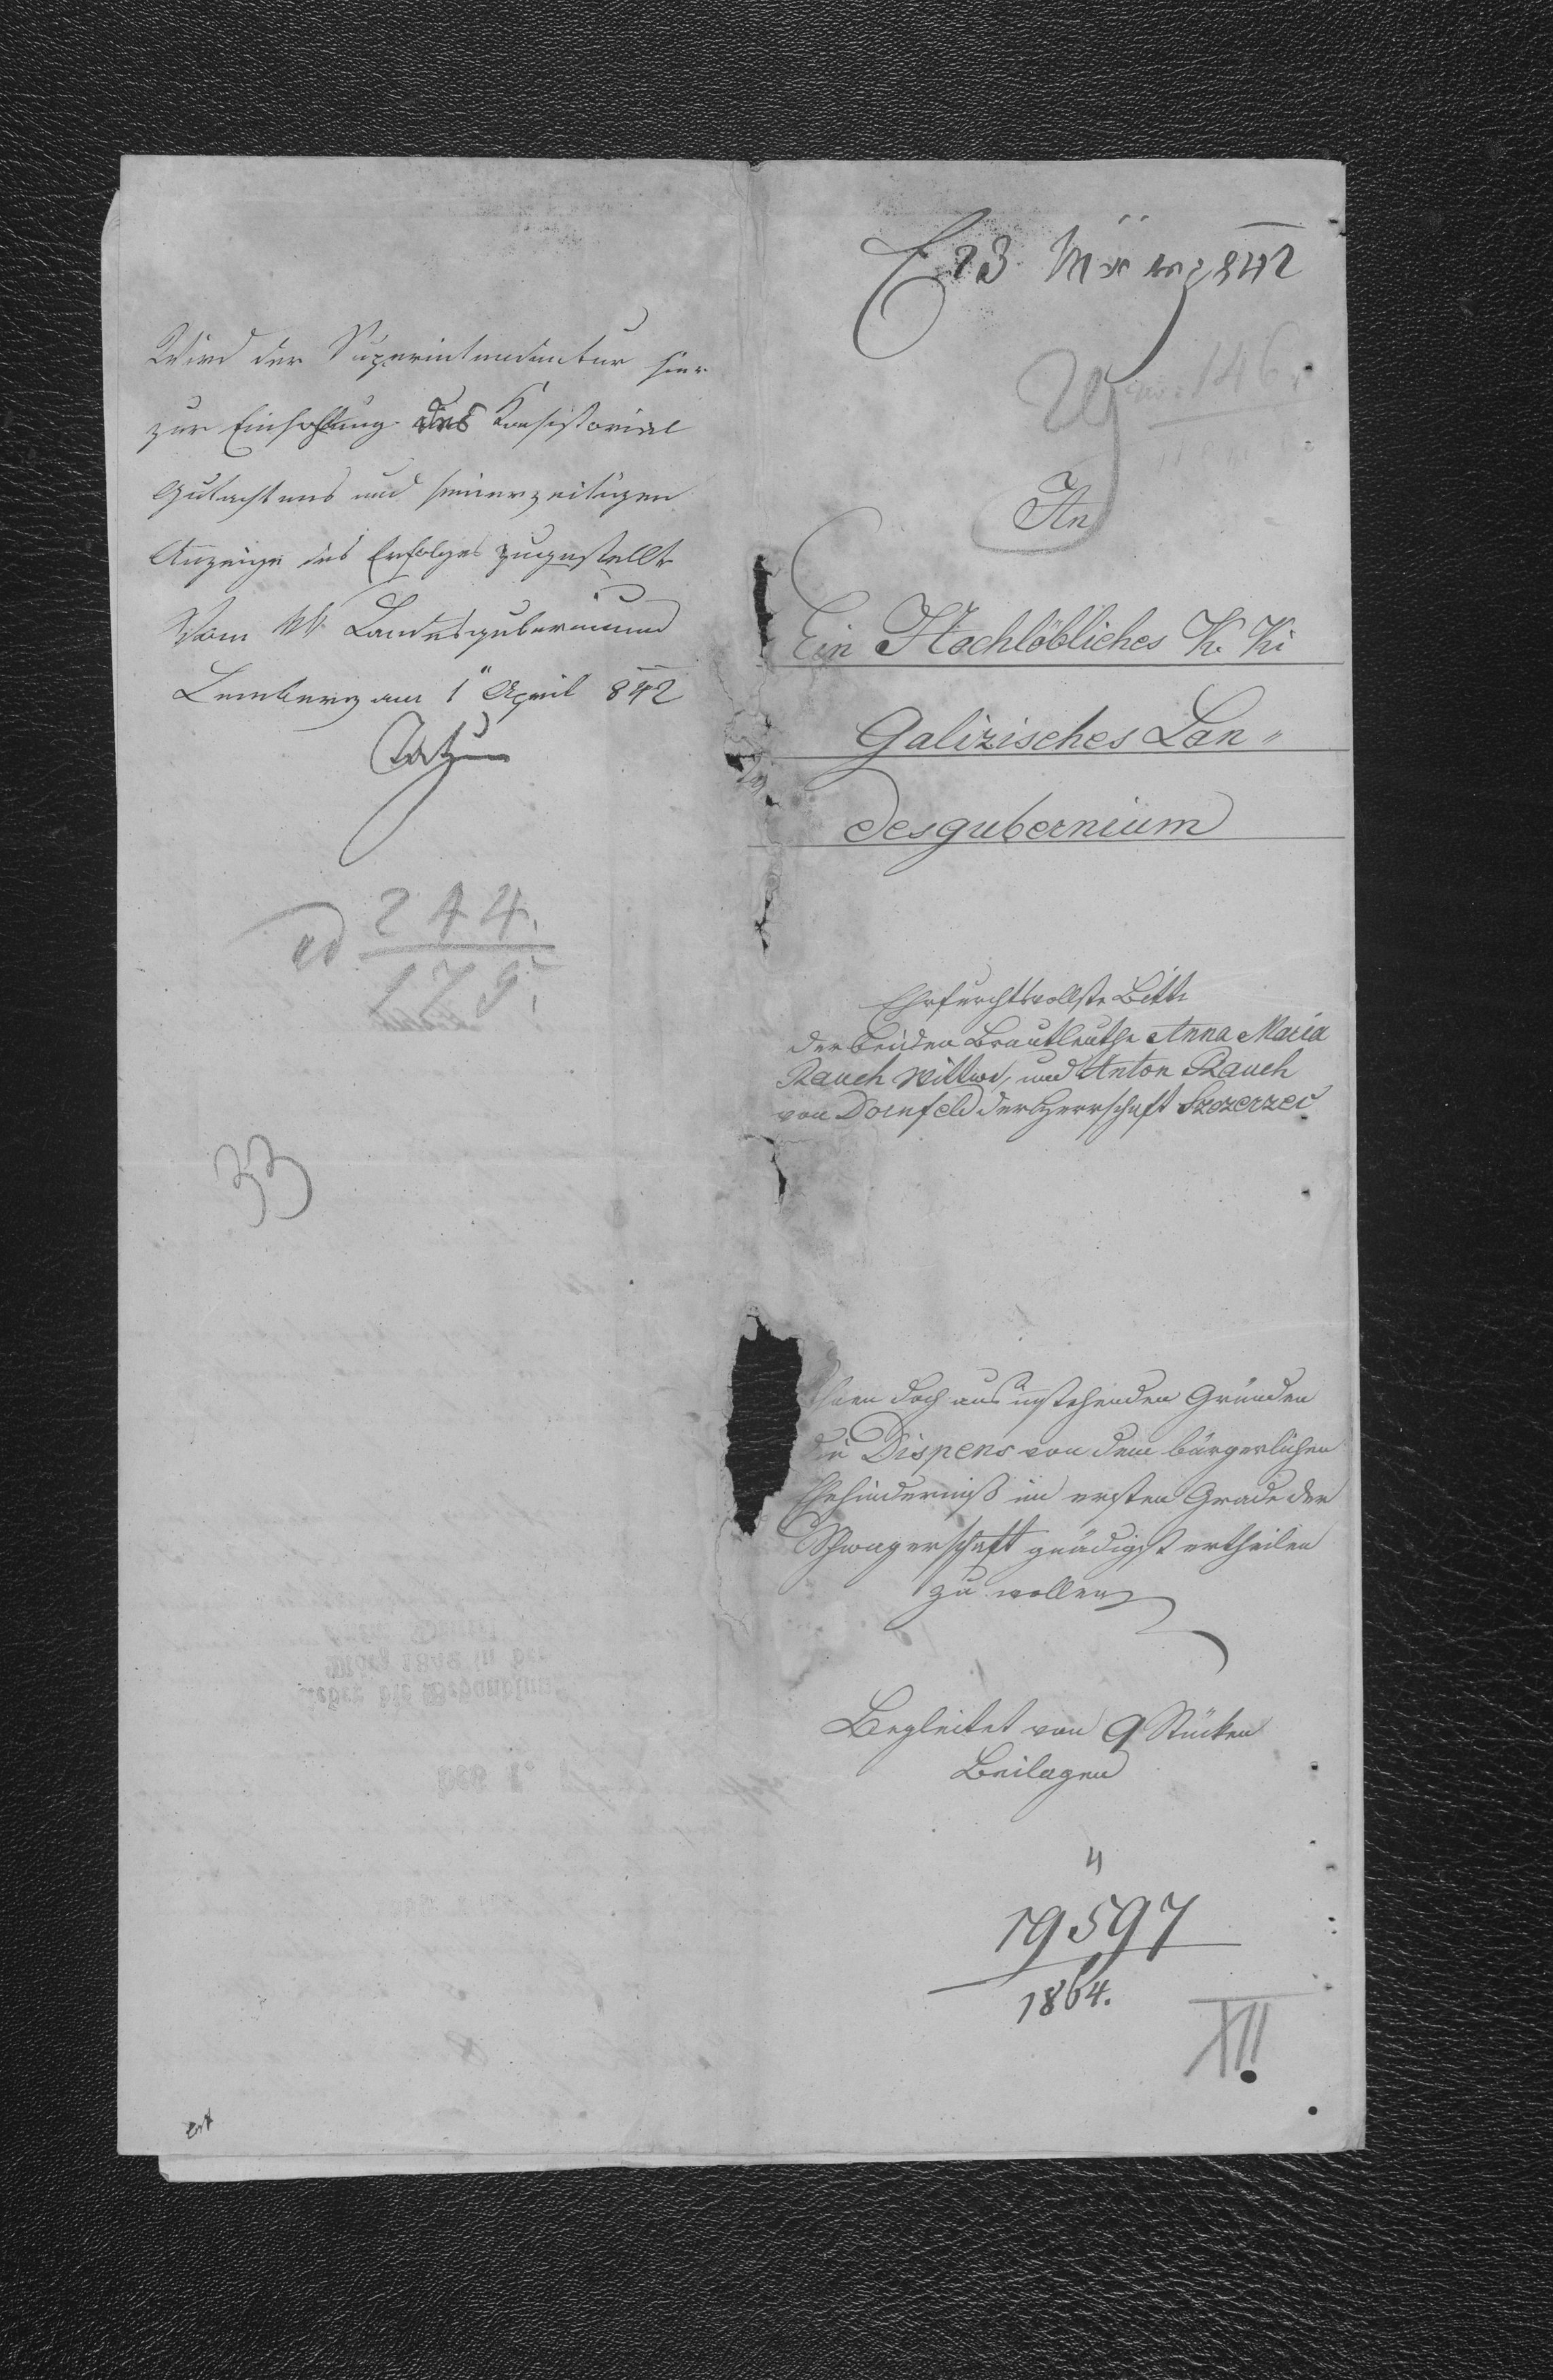 Wird der Superintendentur hier
zur Einhohlung des Konsistorial
Gutachtens und seinerzeitigen
Anzeige des Erfolges zugestellt
Vom kk Landesgubernium
Lemberg am 1" April 842
ad 244.
175.
33
E 23 März 842
146.
An
Ein Hochlöbliches K. K.
Galizisches Lan"
desgubernium
Ehrfurchtsvollste Bitte
der beiden Brautleuthe Anna Maria
Rauch Wittwe, und Anton Rauch
von Dornfeld der Herrschaft Szczerzec
ihnen doch aus
instehenden Gründen
die Dispens von dem bürgerlichen
Ehehinderniß im ersten Grade der
Schwagerschaft gnädigst ertheilen
zu wollen
Begleitet von 9 Stücken
Beilagen
4
19597
1864.
XII.